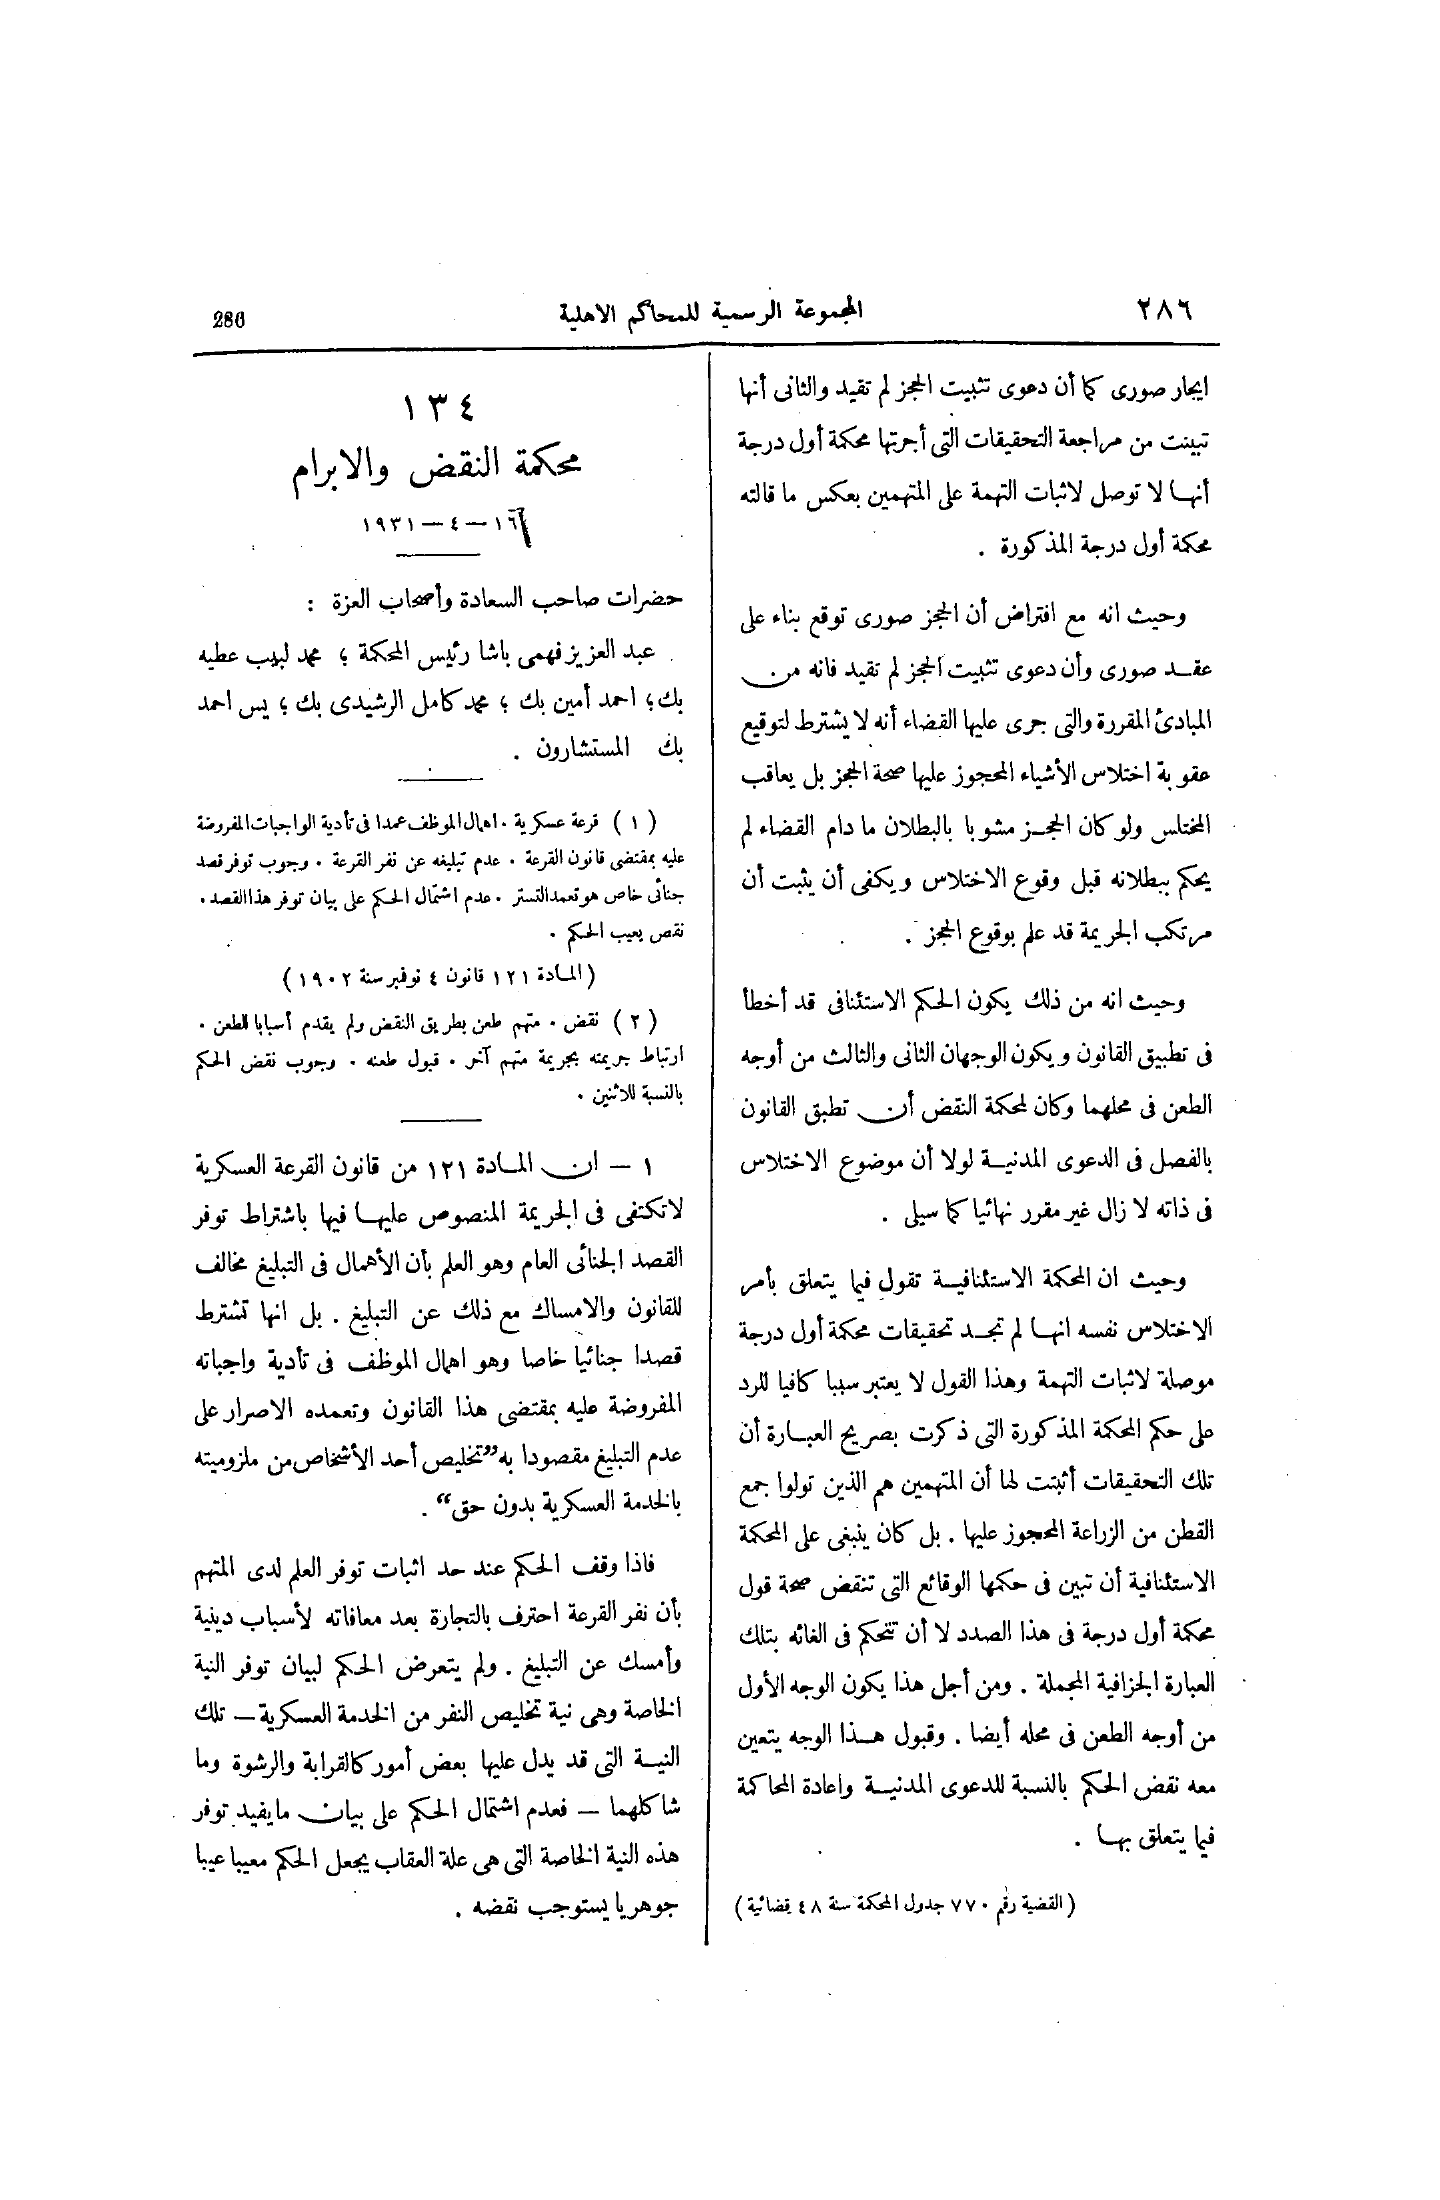 ٢٨٦
المجموعة الرسمية للمحاكم الاهلية
286
ايجار صورى كما أن دعوى تثبيت الحجز لم تقيد والثانى أنها
تبينت من مراجعة التحقيقات التى أجرتها محكمة أول درجة
أنها لا توصل لاثبات التهمة على المتهمين بعكس ما قالته
محكمة أول درجة المذكورة .
وحيث انه مع افتراض أن الحجز صورى توقع بناء على
عقد صورى وأن دعوى تثبيت الحجز لم تقيد فانه من
المبادئ المقررة والتى جرى عليها القضاء أنه لا يشترط لتوقيع
عقوبة اختلاس الأشياء المحجوز عليها صحة الحجز بل يعاقب
المختلس ولو كان الحجز مشوبا بالبطلان ما دام القضاء لم
يحكم ببطلانه قبل وقوع الاختلاس ويكفى أن يثبت أن
مرتكب الجريمة قد علم بوقوع الحجز .
وحيث انه من ذلك يكون الحكم الاستئنافى قد أخطأ
فى تطبيق القانون ويكون الوجهان الثانى والثالث من أوجه
الطعن فى محلهما وكان لمحكمة النقض أن تطبق القانون
بالفصل فى الدعوى المدنية لولا أن موضوع الاختلاس
فى ذاته لا زال غير مقرر نهائيا كما سيلى .
وحيث ان المحكمة الاستئنافية تقول فيما يتعلق بأمر
الاختلاس نفسه انها لم تجد تحقيقات محكمة أول درجة
موصلة لاثبات التهمة وهذا القول لا يعتبر سببا كافيا للرد
على حكم المحكمة المذكورة التى ذكرت بصريح العبارة أن
تلك التحقيقات أثبتت لها أن المتهمين هم الذين تولوا جمع
القطن من الزراعة المحجوز عليها . بل كان ينبغى على المحكمة
الاستئنافية أن تبين فى حكمها الوقائع التى تنقض صحة قول
محكمة أول درجة فى هذا الصدد لا أن تتحكم فى الغائه بتلك
العبارة الجزافية المجملة . ومن أجل هذا يكون الوجه الأول
من أوجه الطعن فى محله أيضا . وقبول هذا الوجه يتعين
معه نقض الحكم بالنسبة للدعوى المدنية واعادة المحاكمة
فيما يتعلق بها .
( القضية رقم ٧٧٠ جدول المحكمة سنة ٤٨ قضائية )
١٣٤
محكمة النقض والابرام
١٦ – ٤ – ١٩٣١
حضرات صاحب السعادة وأصحاب العزة :
عبد العزيز فهمى باشا رئيس المحكمة ؛ محمد لبيب عطيه
بك ؛ احمد أمين بك ؛ محمد كامل الرشيدى بك ؛ يس احمد
بك المستشارون .
( ١ ) قرعة عسكرية . اهمال الموظف عمدا فى تأدية الواجبات المفروضة
عليه بمقتضى قانون القرعة . عدم تبليغه عن نفر القرعة . وجوب توفر قصد
جنائى خاص هو تعمد التستر . عدم اشتمال الحكم على بيان توفر هذا القصد .
نقص يعيب الحكم .
( المادة ١٢١ قانون ٤ نوفمبر سنة ١٩٠٢ )
( ٢ ) نقض . متهم طعن بطريق النقض ولم يقدم أسبابا للطعن .
ارتباط جريمته بجريمة متهم آخر . قبول طعنه . وجوب نقض الحكم
بالنسبة للاثنين .
١ – ان المادة ١٢١ من قانون القرعة العسكرية
لا تكتفى فى الجريمة المنصوص عليها فيها باشتراط توفر
القصد الجنائى العام وهو العلم بأن الأهمال فى التبليغ مخالف
للقانون والامساك مع ذلك عن التبليغ . بل انها تشترط
قصدا جنائيا خاصا وهو اهمال الموظف فى تأدية واجباته
المفروضة عليه بمقتضى هذا القانون وتعمده الاصرار على
عدم التبليغ مقصودا به ”تخليص أحد الأشخاص من ملزوميته
بالخدمة العسكرية بدون حق“ .
فاذا وقف الحكم عند حد اثبات توفر العلم لدى المتهم
بأن نفر القرعة احترف بالتجارة بعد معافاته لأسباب دينية
وأمسك عن التبليغ . ولم يتعرض الحكم لبيان توفر النية
الخاصة وهى نية تخليص النفر من الخدمة العسكرية – تلك
النية التى قد يدل عليها بعض أمور كالقرابة والرشوة وما
شاكلهما – فعدم اشتمال الحكم على بيان ما يفيد توفر
هذه النية الخاصة التى هى علة العقاب يجعل الحكم معيبا عيبا
جوهريا يستوجب نقضه .